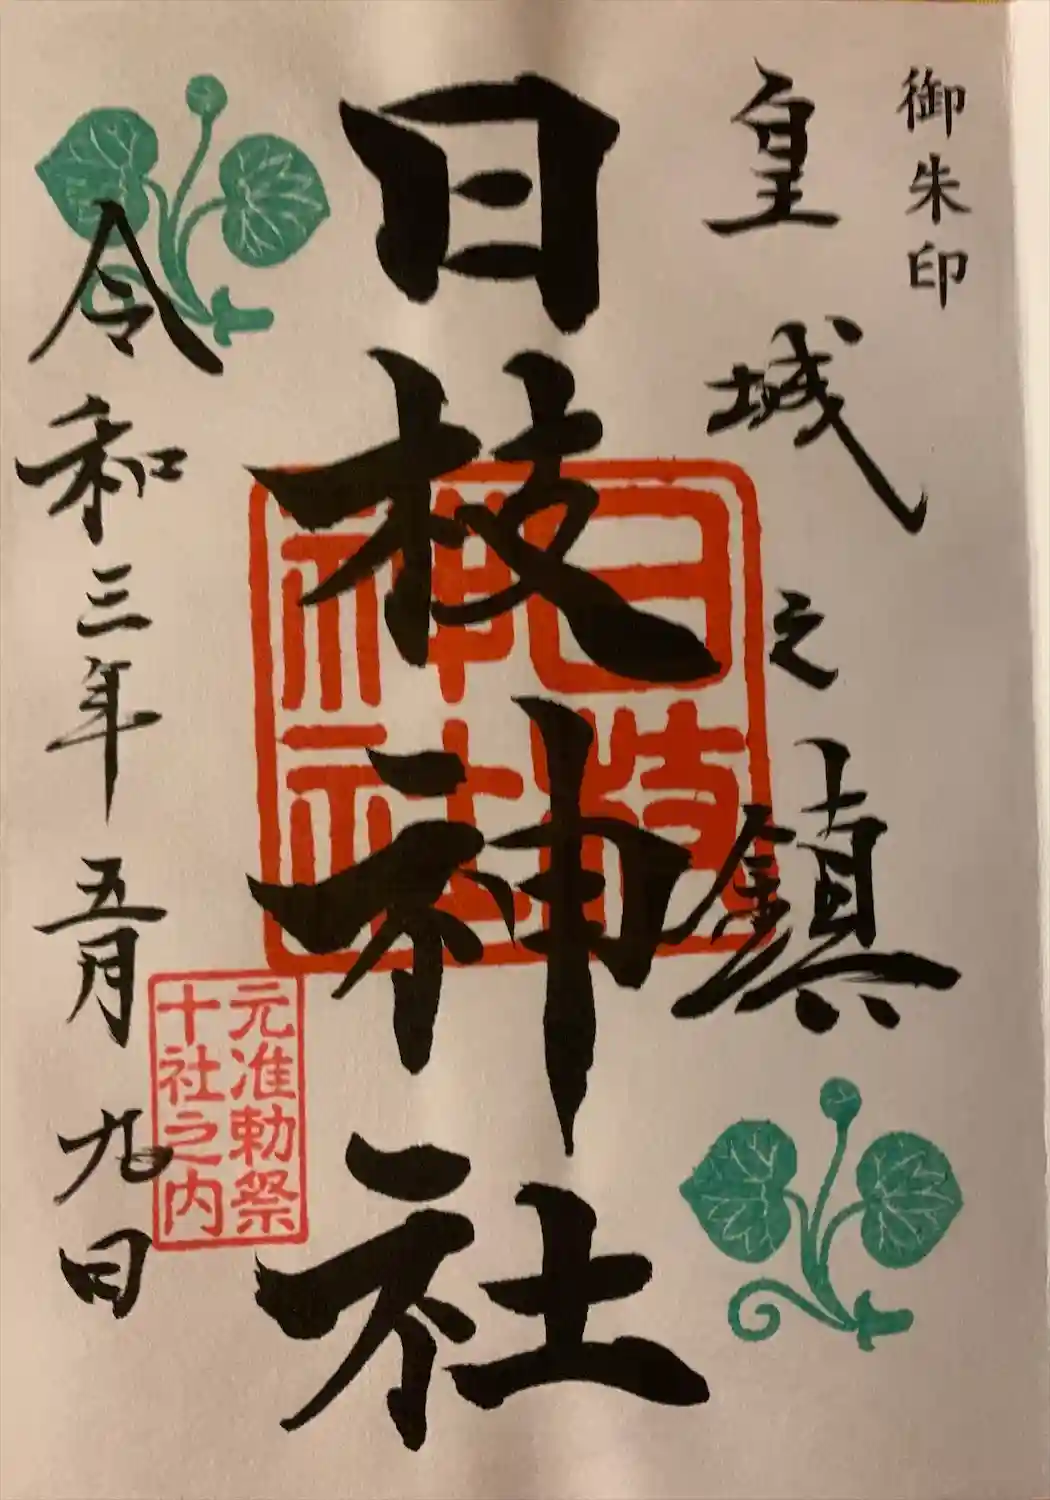 御朱印
皇城之鎮
日枝神社
日枝
神社
令和三年五月九日
元准勅祭
十社之内